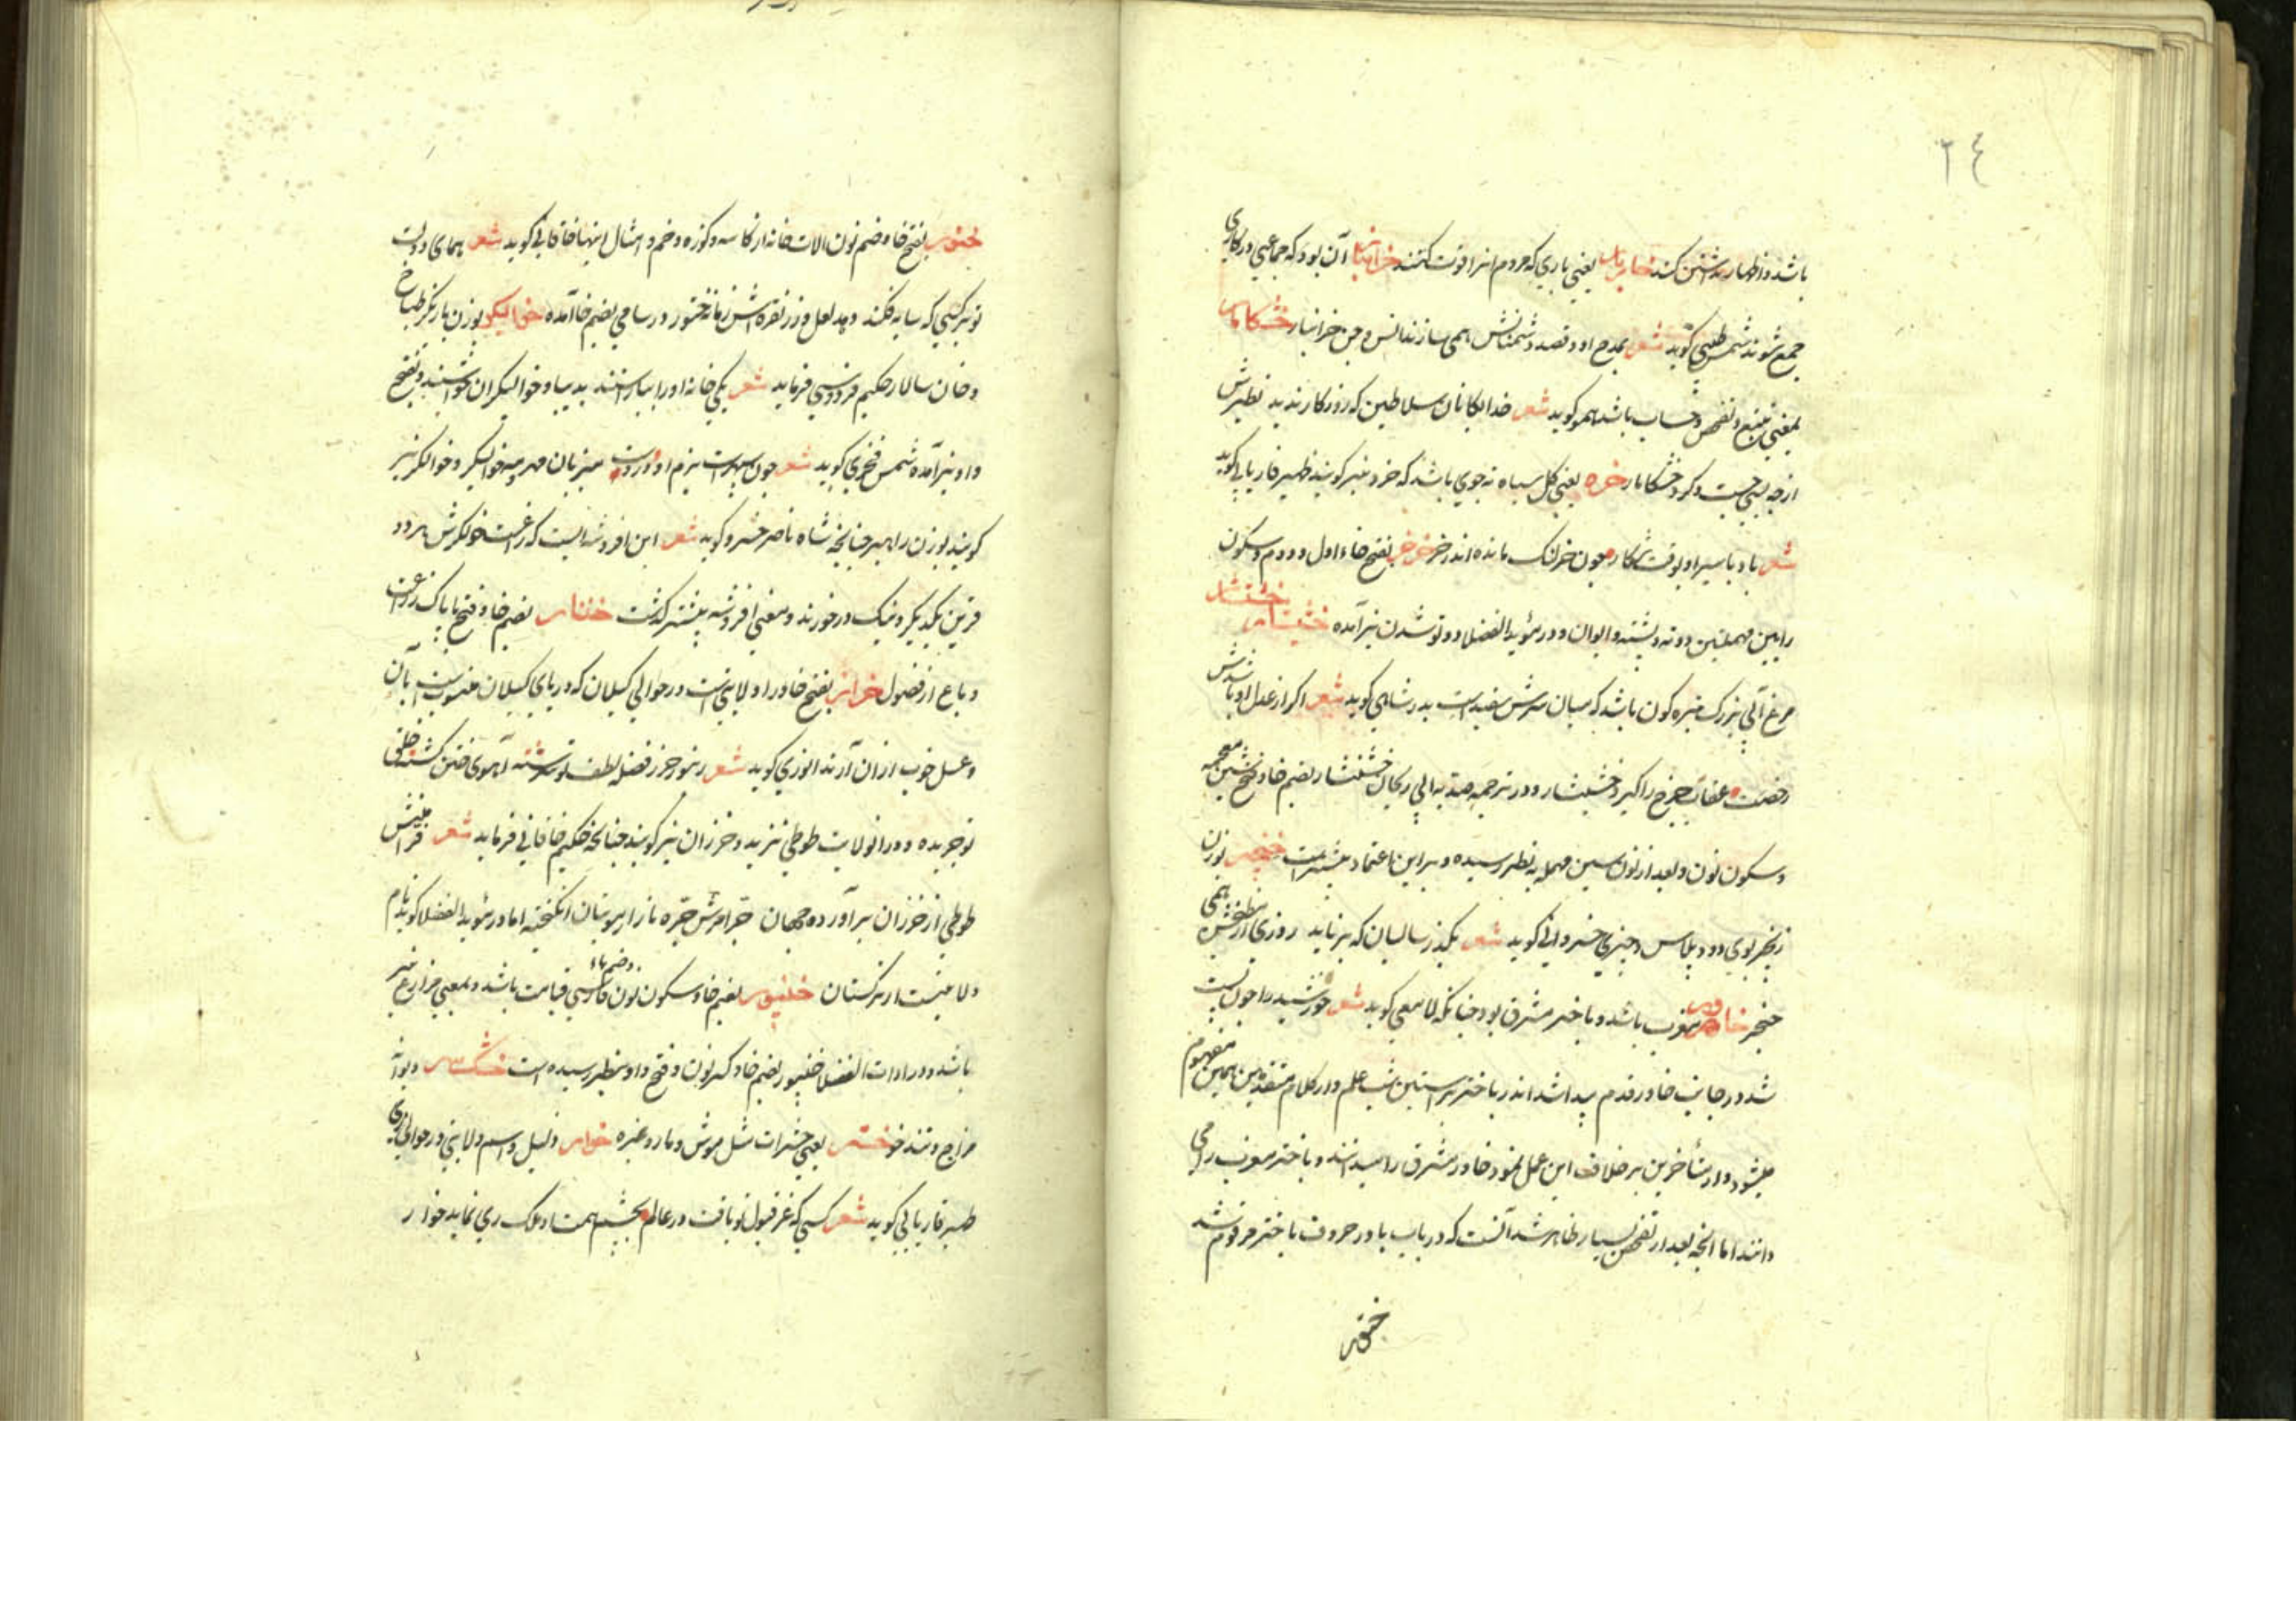 ٢٤
باشد و اظهار بد شدن کند یعنی باری که مردم انرا فوت کنند خرانبار آن بود که جماعتی در کاری
جمع شوند شمس طبسی گوید شعر بمدح او و قصد دشمنانش همی سازند انس و جن خرانبار خشکامار
بمعنی تتبع و تفحص و حساب باشد همو گوید شعر خدایکانان سلاطین که روزکار ندید نظیرش
ازچه بسی جست و کرد خشکامار خره یعنی کل سیاه ته جوی باشد که خرد نیز کویند ظهیر فاریابی کوید
شعر باد با سیر او بوقت شکار چون خرلنک مانده اندر خر خرخر بفتح خاء اول و دوم و سکون
رایین مهملتین دوته و پشته و ایوان و در مؤید الفضلا دوتو شدن نیز آمده خشینسار خشنشار
مرغ آبی بزرک تیره کون باشد که میان سرش سفید است بدر شاهی کوید شعر اکر از عدل او باشدش
رخصت عقاب چرخ را کیرد خشینشار و در ترجمه صیدنه ابی ریحان خشنشار بضم خا و فتح شین معجمه
و سکون نون و بعد از نون سین مهمله به نظر رسیده و بر این اعتماد بیشتر است خنجیر بوزن
زنجیر بوی دود پلاس و چربی خسروانی کوید شعر بکذر سالیان که بر ناید روزی از مطبخش همی
خنجیر خاور مغرب باشد و باختر مشرق بود چنانکه لامعی کوید شعر خورشید را چون پست
شد در جانب خاور قدم پیدا شد اندر باختر بر آستین شب علم و از کلام متقدمین همین مفهوم
میشود و از متأخرین بر خلاف این عمل نمود خاور مشرق را میدانند و باختر مغرب را می
دانند اما انچه بعد از تفحص بسیار ظاهر شد آنست که در باب با در حروف باختر مرقوم شد
خنور
خنور بفتح خا و ضم نون الات خانه از کاسه و کوزه و خم و امثال اینها خاقانی کوید شعر همای دولت
تو بر کسی که سایه فکند دهد لعل و زر نقره اش زمانه خنور و در سامی بضم خا آمده خوالیکر بوزن باریکر طباخ
و خان سالار حکیم فردوسی فرماید شعر یکی خانه او را بیاراستند به دیبا و خوالیکران خواستند و بفتح
واو نیز آمده شمس فخری کوید شعر چون سپهر است بزم او و در وست میزبان مهر و مه خوالیکر و خوالکر نیز
کویند بوزن راهبر چنانچه شاه ناصر خسرو کوید شعر این افروشه ایست که زاغست خولکرش هر دو
قرین یکدیکر و نیک درخورند و معنی افروشه بیشتر کذشت خنار بضم خا و فتح با پاک
و باع از فصول خزر بفتح خا و را ولایتی است در حوالی کیلان که دریای کیلان منسوب است بآن
و عسل خوب از ان آرند انوری کوید شعر زنبور خزر فضله لطف تو سرشته آهوی ختن کشته خلق
تو چریده و در انولایت طوطی نزید و خزران نیز کویند چنانچه حکیم خاقانی فرماید شعر
طوطی از خزران برآورده جهان اما در مؤید الفضلا کوید نام
ولایتست از ترکستان بضم خا و سکون نون و ضم باء فارسی قیامت باشد و بمعنی خرارع نیز
باشد و در ادات الفضلا خنیور بضم خا و کسر نون و فتح واو بنظر رسیده است خشکسر دیوانه
مزاج و تندخو خستر یعنی حشرات مثل موش و مار و غیره خوار ذلیل و اسم ولایتی در حوالی ری
ظهیر فاریابی کوید شعر کسی که عز قبول تو یافت در عالم بچشم همت او ملک ری نماید خوار